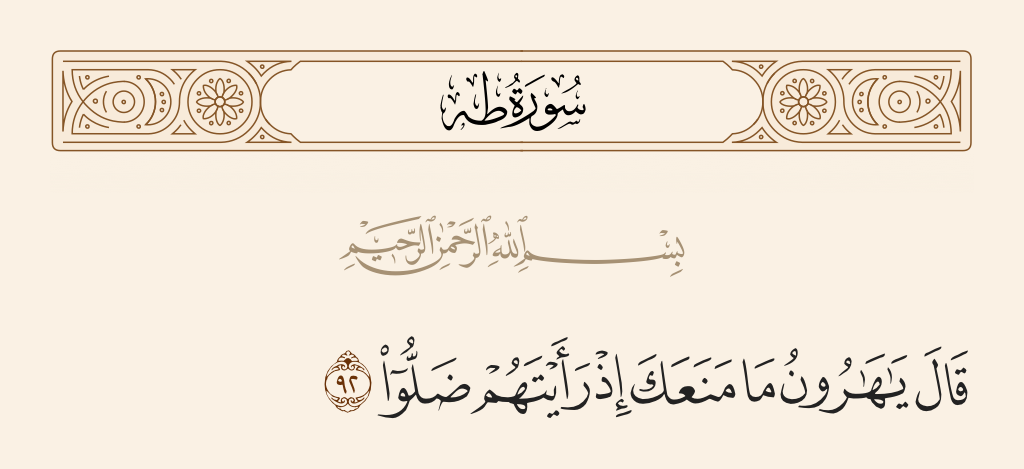 سُورَةُ طه
بِسْمِ ٱللَّهِ ٱلرَّحْمَٰنِ ٱلرَّحِيمِ
قَالَ يَٰهَٰرُونُ مَا مَنَعَكَ إِذْ رَأَيْتَهُمْ ضَلُّوٓا۟ ٩٢